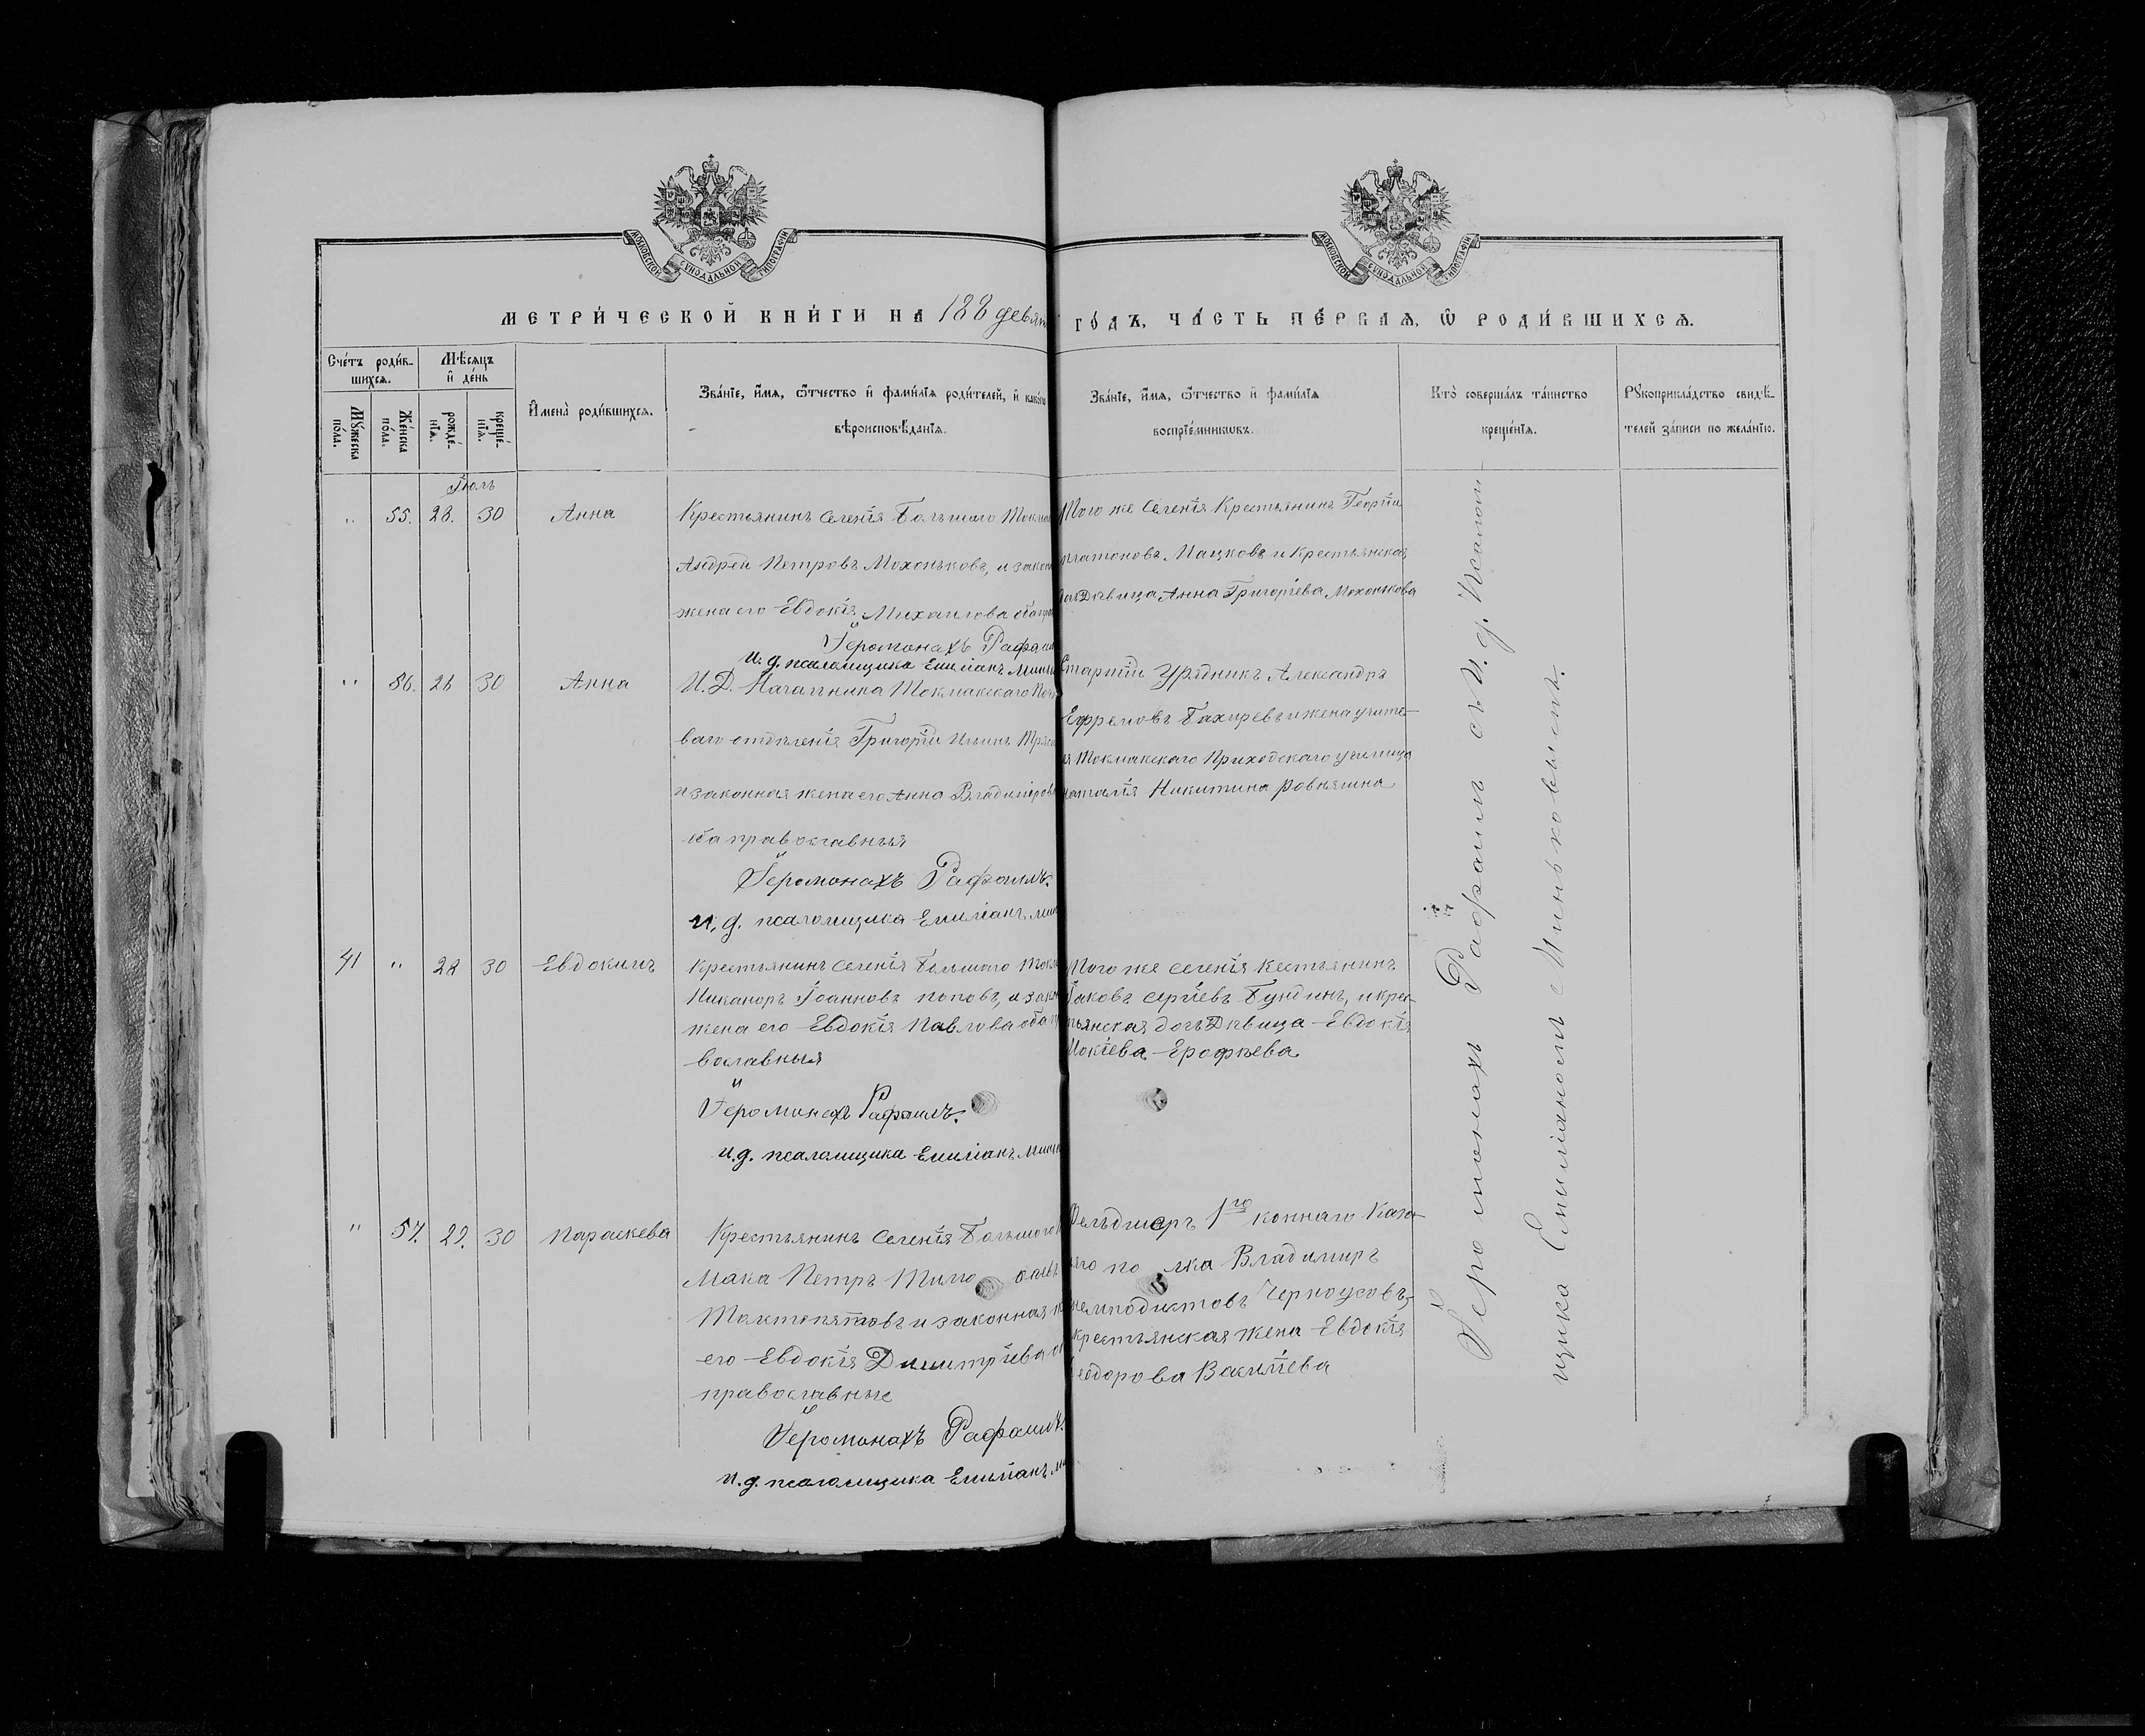 МОСКОВСКОЙ СѴНОДАЛЬНОЙ ТИПОГРАФІИ
МОСКОВСКОЙ СѴНОДАЛЬНОЙ ТИПОГРАФІИ
МЕТРИ́ЧЕСКОЙ КНИ́ГИ НА 188 девят ГО́ДЪ, ЧА́СТЬ ПЕ́РВАѦ, Ѡ҆ РОДИ́ВШИХСѦ.
Сче́тъ роди́в-
шихсѧ.
Мѣ́сѧцъ
и҆ де́нь
Мꙋ́жеска
по́ла.
Же́нска
по́ла.
рожде́-
нїѧ.
креще́-
нїѧ.
И҆мена̀ роди́вшихсѧ.
Зва́нїе, и҆́мѧ, ѻ҆́тчество и҆ фами́лїѧ роди́телей, и҆ како́гѡ
вѣроисповѣ́данїѧ.
Зва́нїе, и҆́мѧ, ѻ҆́тчество и҆ фами́лїѧ
воспрїе́мникѡвъ.
Кто̀ соверша́лъ та́инство
креще́нїѧ.
Рꙋкоприкла́дство свидѣ́-
телей за́писи по жела́нїю.
Іюль
" 55. 28. 30 Анна
Крестьянинъ селенія Большого Токма
Андрей Петровъ Мохоньковъ, и закон
жена его Евдокія Михаилова оба пра
Іеромонахъ Рафаил
И. д. псаломщика Емиліанъ Минь
Того же селенія Крестьянинъ Георгій
платоновъ Мацковъ и Крестьянская
дочь Дѣвица Анна Григоріева Мохонькова
" 56. 26 30 Анна
И. Д. Начальника Токмакскаго Поч
ваго отдѣленія Григорій Ильинъ
и законная жена его Анна Владимірова
оба православныя
Іеромонахъ Рафаилъ.
и, д. псаломщика Емиліанъ Мин
Старшій Урядникъ Александръ
Ефремовъ Бахиревъ и жена учите-
ля Токмакскаго Приходскаго училища
наталія Никитина Ровнягина
41 " 28 30 Евдокимъ
Крестьянинъ селенія Большого Токм
Никаноръ Іоанновъ поповъ, и закон
жена его Евдокія Павлова оба п
вославныя
Іеромонахъ Рафаилъ.
и. д. псаломщика Емиліанъ Минь
Того же селенія Кестьянинъ
Іаковъ сергіевъ Бундинъ, и крес-
тьянская дочь Дѣвица Евдокія
Мокіева Ерофѣева
" 57. 29. 30 Параскева
Крестьянинъ селенія Большого
Мака Петръ Тимо
и законная
его Евдокія Димитріева
православные
Іеромонахъ Рафаилъ.
и. д. псаломщика Емиліанъ Ми
Фельдшеръ 1го коннаго Каза-
чего по лка Владимиръ
немподистовъ Черноусовъ,
крестьянская жена Евдокія
Ѳеодорова Василіева
Іеромонахъ Рафаилъ съ И. д. Псалом-
щика Емиліаномъ Миньковымъ.